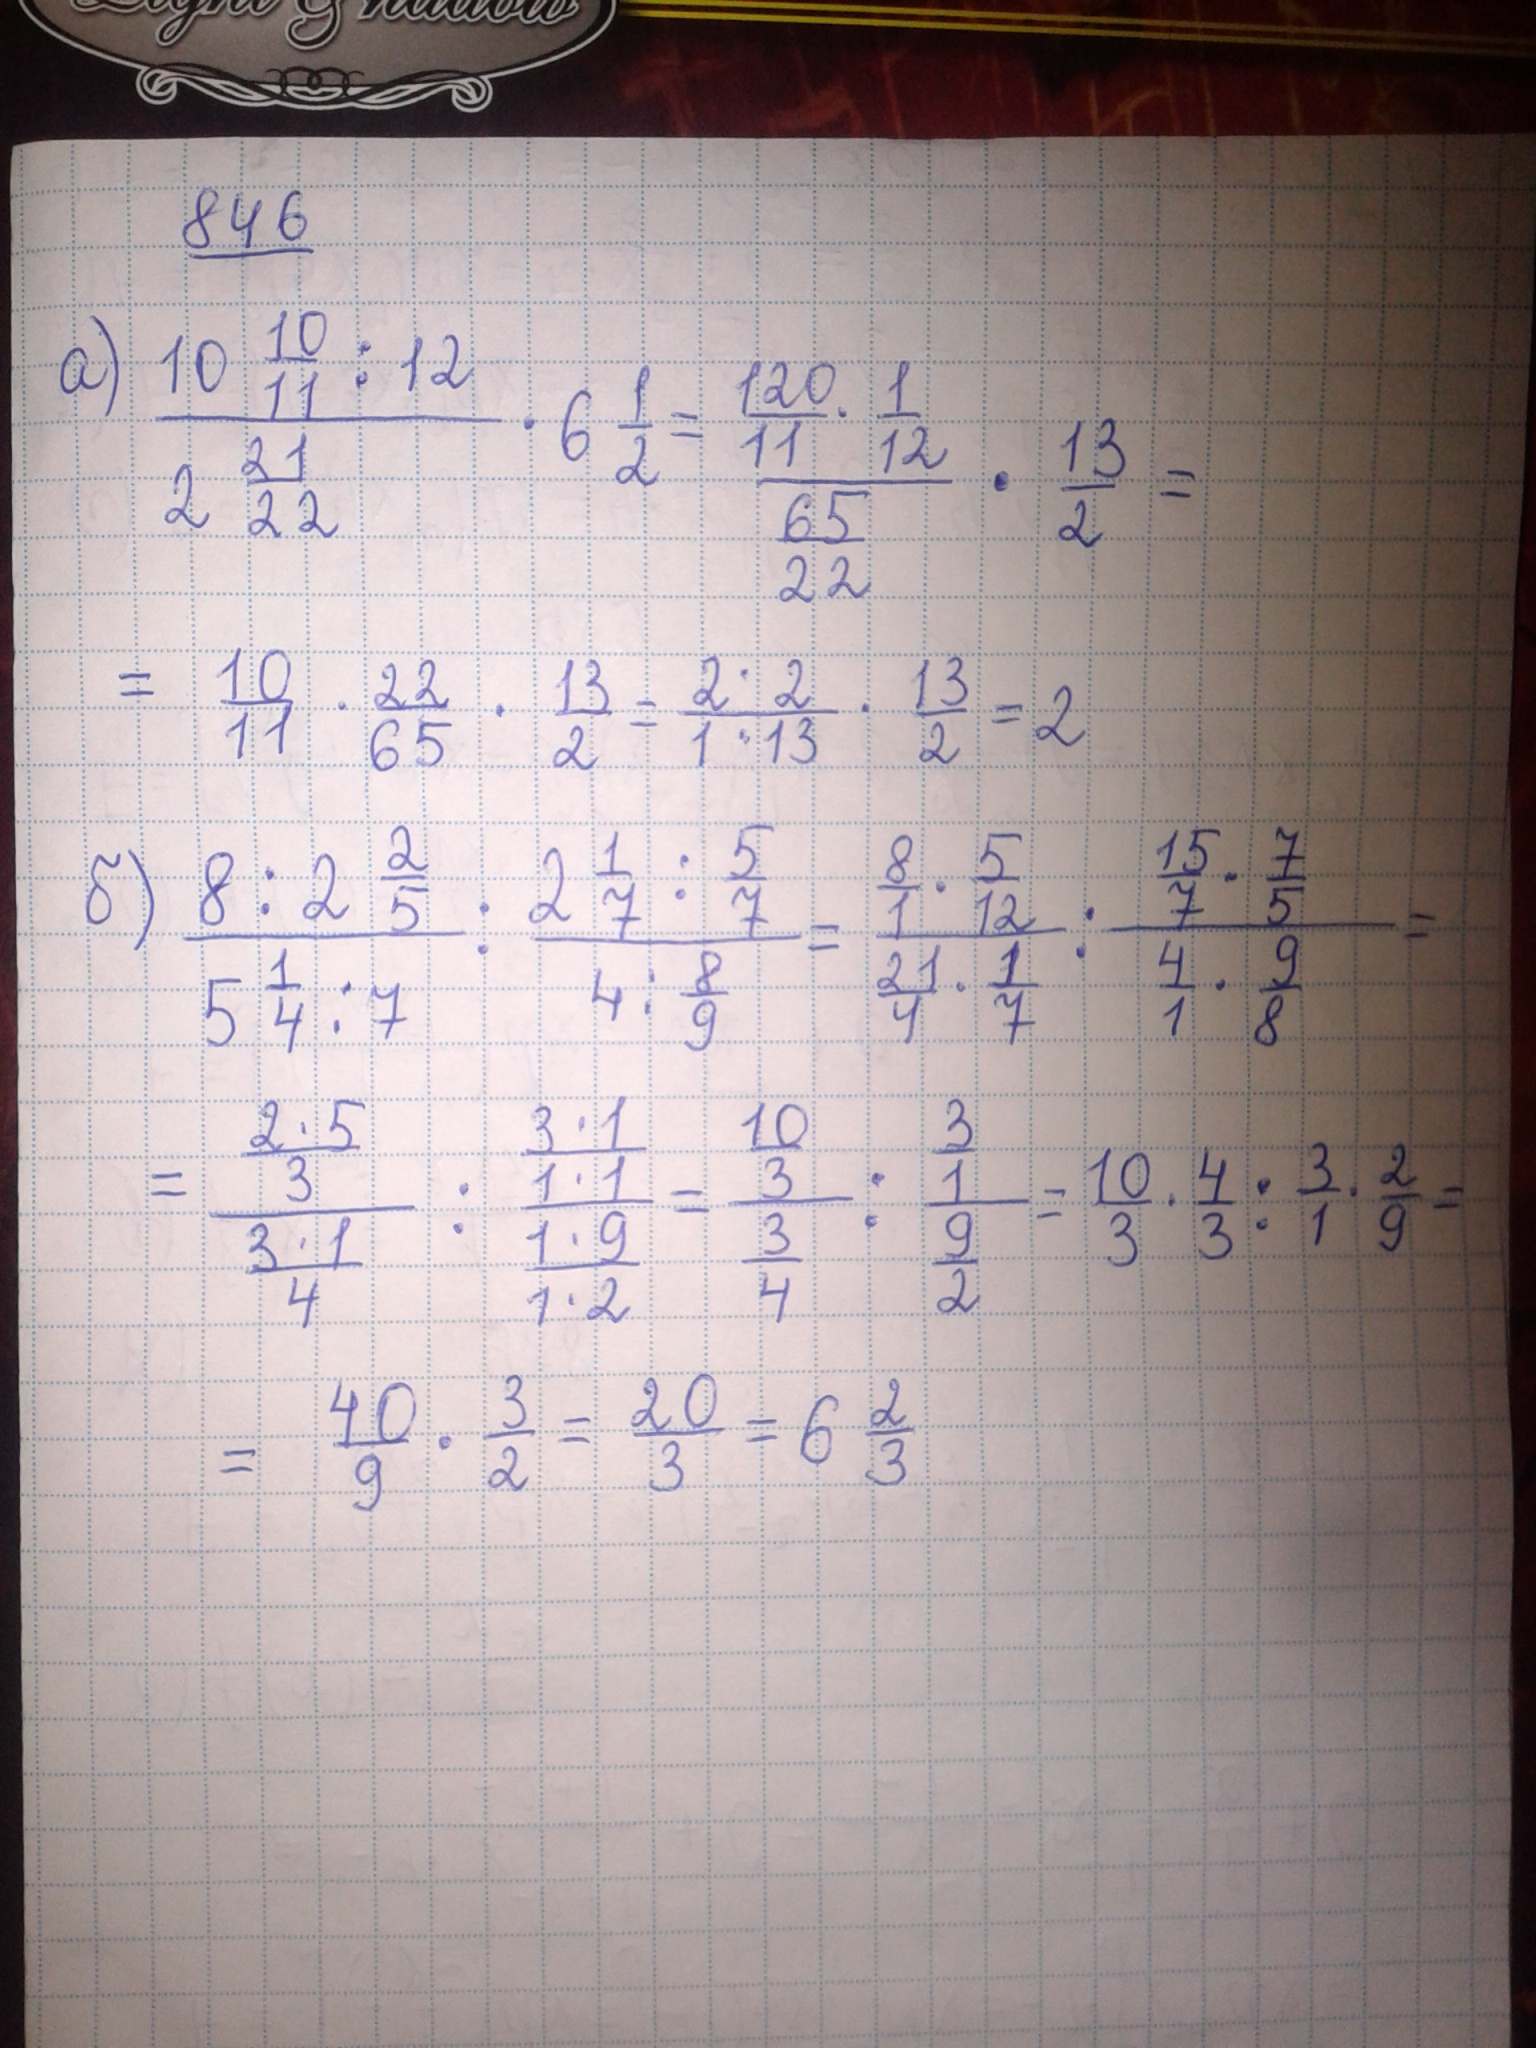 Light & Shadow
846
а) (10 10/11 : 12)/(2 21/22) · 6 1/2 = (120/11 · 1/12)/(65/22) · 13/2 =
= 10/11 · 22/65 · 13/2 = (2 · 2)/(1 · 13) · 13/2 = 2
б) (8 : 2 2/5)/(5 1/4 : 7) : (2 1/7 : 5/7)/(4 : 8/9) = (8/1 · 5/12)/(21/4 · 1/7) : (15/7 · 7/5)/(4/1 · 9/8) =
= ((2 · 5)/3)/((3 · 1)/4) : ((3 · 1)/(1 · 1))/((1 · 9)/(1 · 2)) = (10/3)/(3/4) : (3/1)/(9/2) = 10/3 · 4/3 : 3/1 · 2/9 =
= 40/9 · 3/2 = 20/3 = 6 2/3